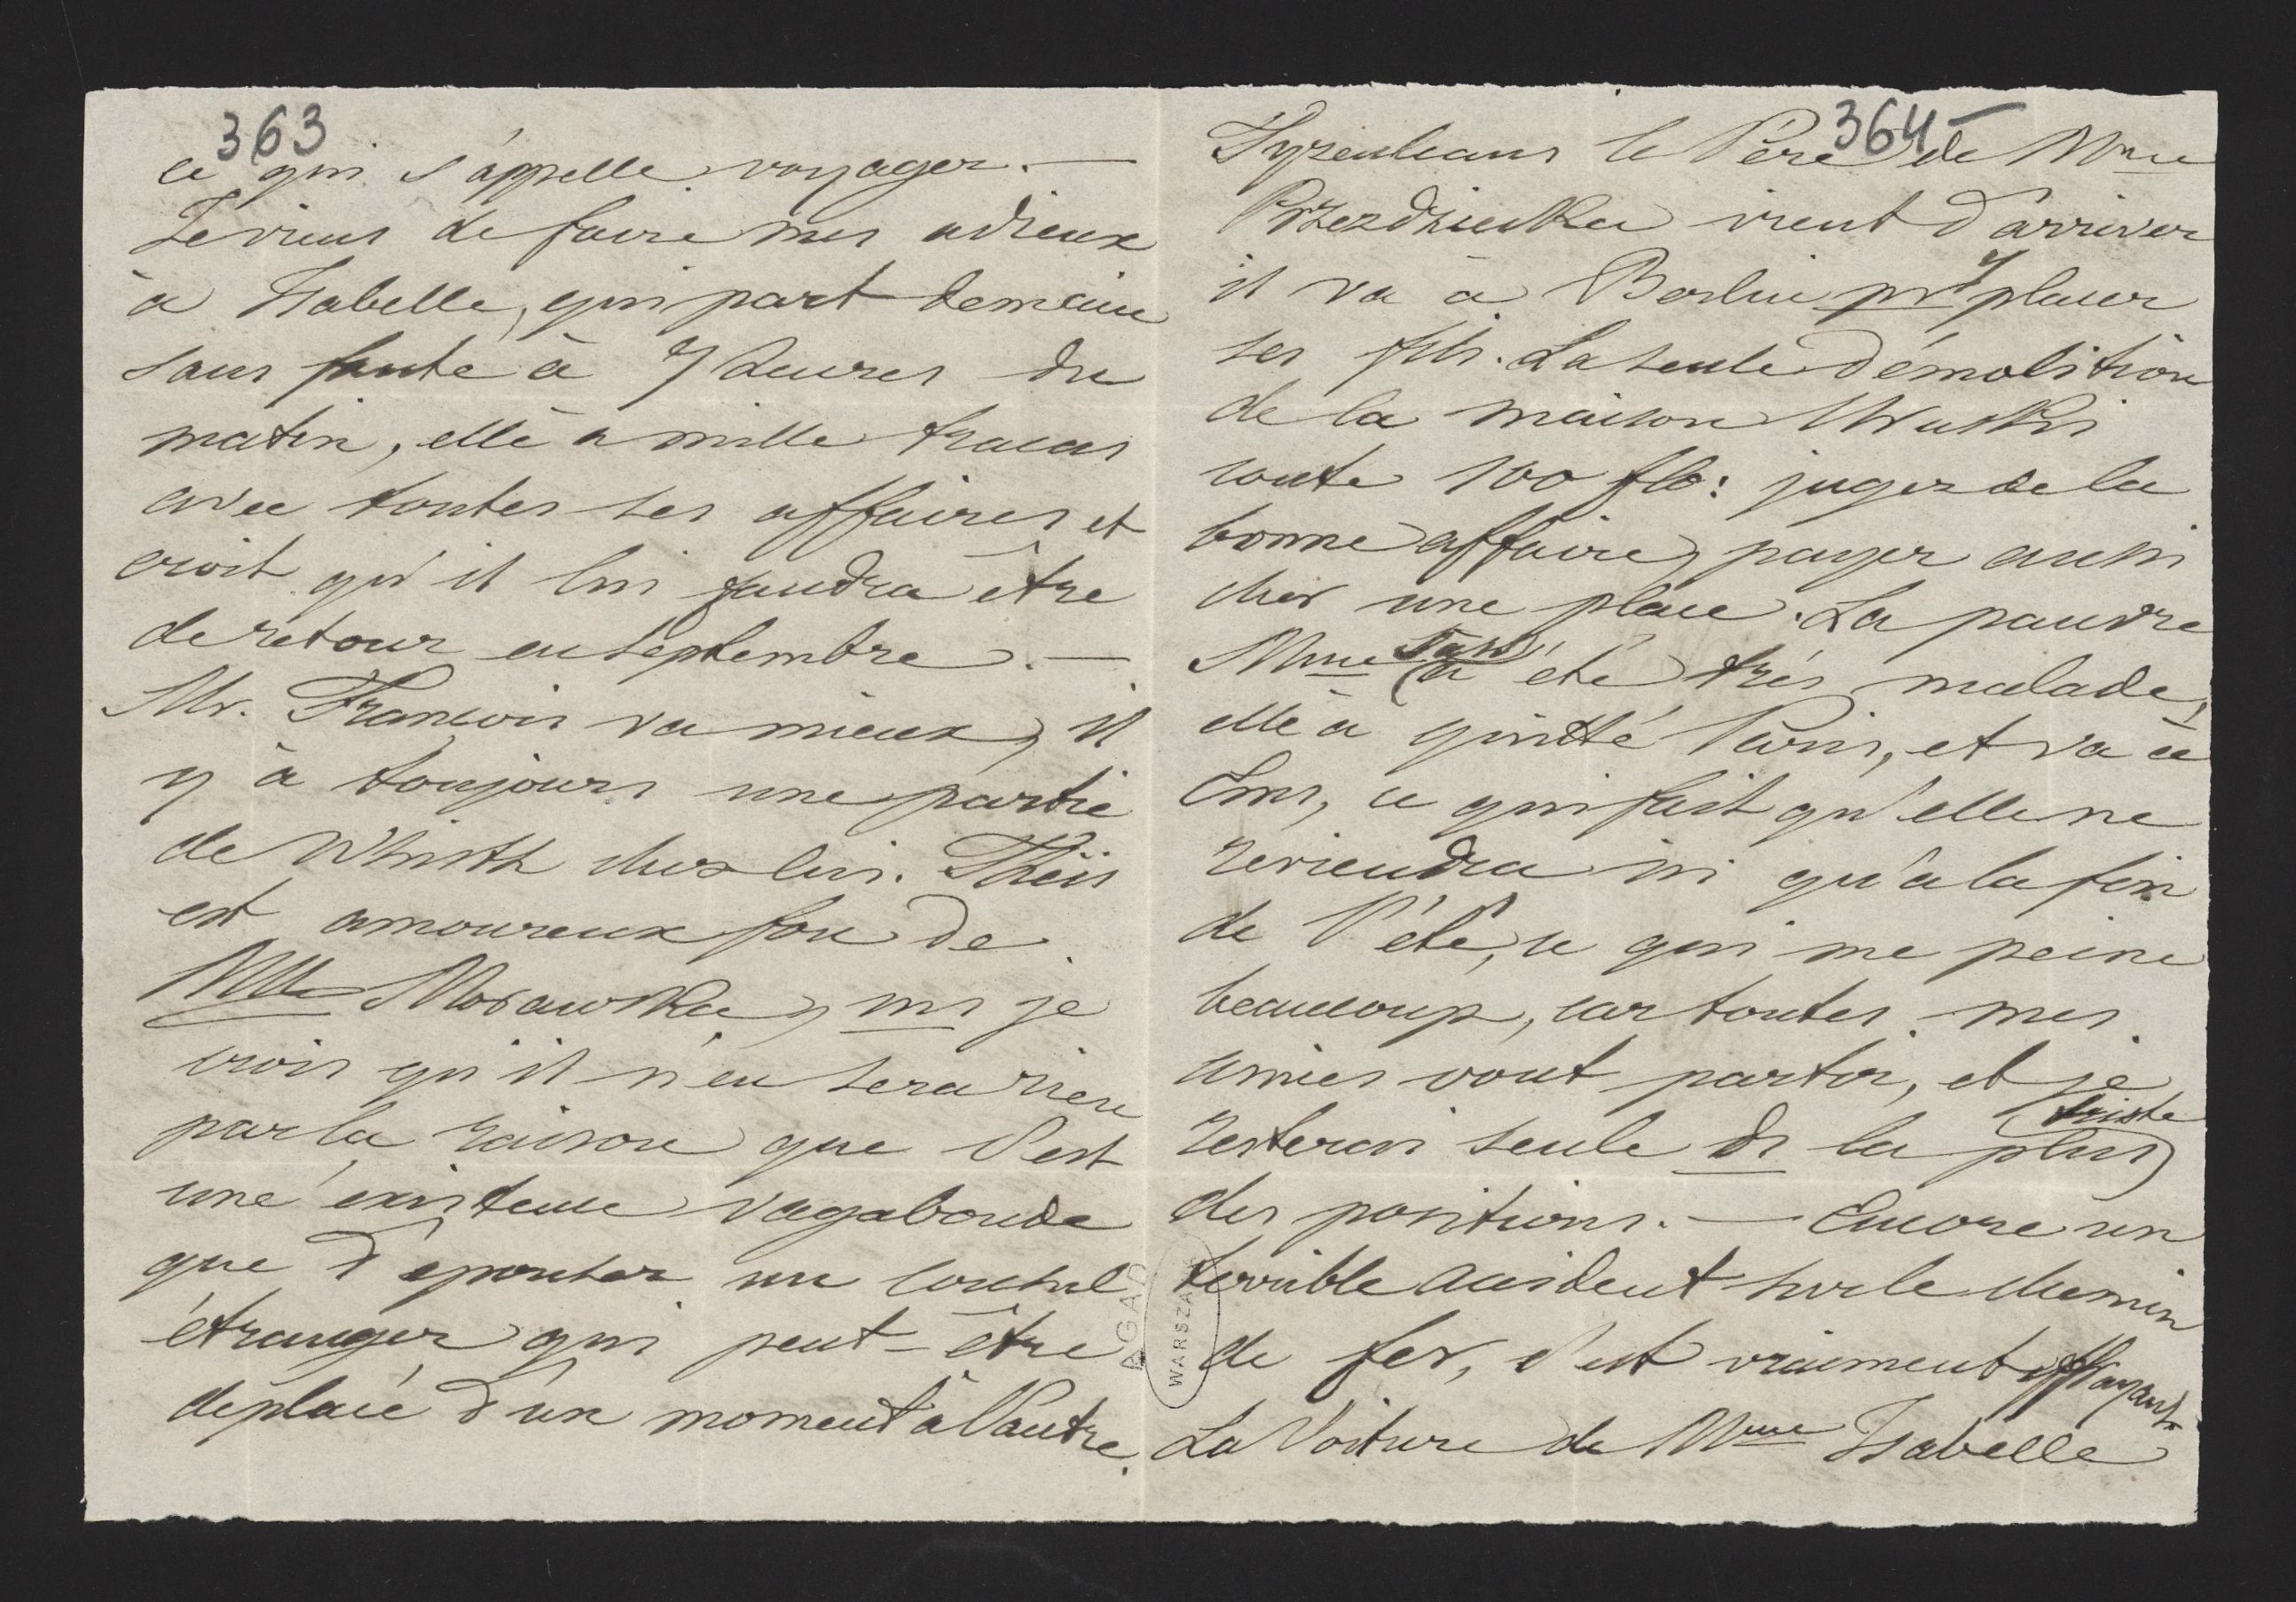 363
ce qui s'appelle voyager. —
Je viens de faire mes adieux
à Isabelle, qui part demain
sans faute à 7 heures du
matin, elle a mille tracas
avec toutes ses affaires et
croit qu'il lui faudra être
de retour en Septembre. —
Mr. François va mieux, il
y à toujours une partie
de Whisth chez lui. Theis
est amoureux fou de
Mlle Morawska, ms je
crois qu'il n'en sera rien
par la raison que c'est
une existence vagabonde
que d'épouser un consul
étranger qui peut-être
déplacé d'un moment à l'autre.
364
le Père de Mme
Przezdziecka vient d'arriver
il va à Berlin pr placer
ses fils. La seule démolition
de la maison
coute 100 flo: jugez de la
bonne affaire, payer aussi
cher une place. La pauvre
Mme a été très malade,
elle a quitté Paris, et va à
Ems, ce qui fait qu'elle ne
reviendra ici qu'a la fin
de l'été, ce qui me peine
beaucoup, car toutes mes
amies vont partir, et je
resterai seule ds la plus triste
des positions. — Encore un
terrible accident sur le chemin
de fer, c'est vraiment effrayant.
La Voiture de Mme Isabelle
AGAD
WARSZAWA